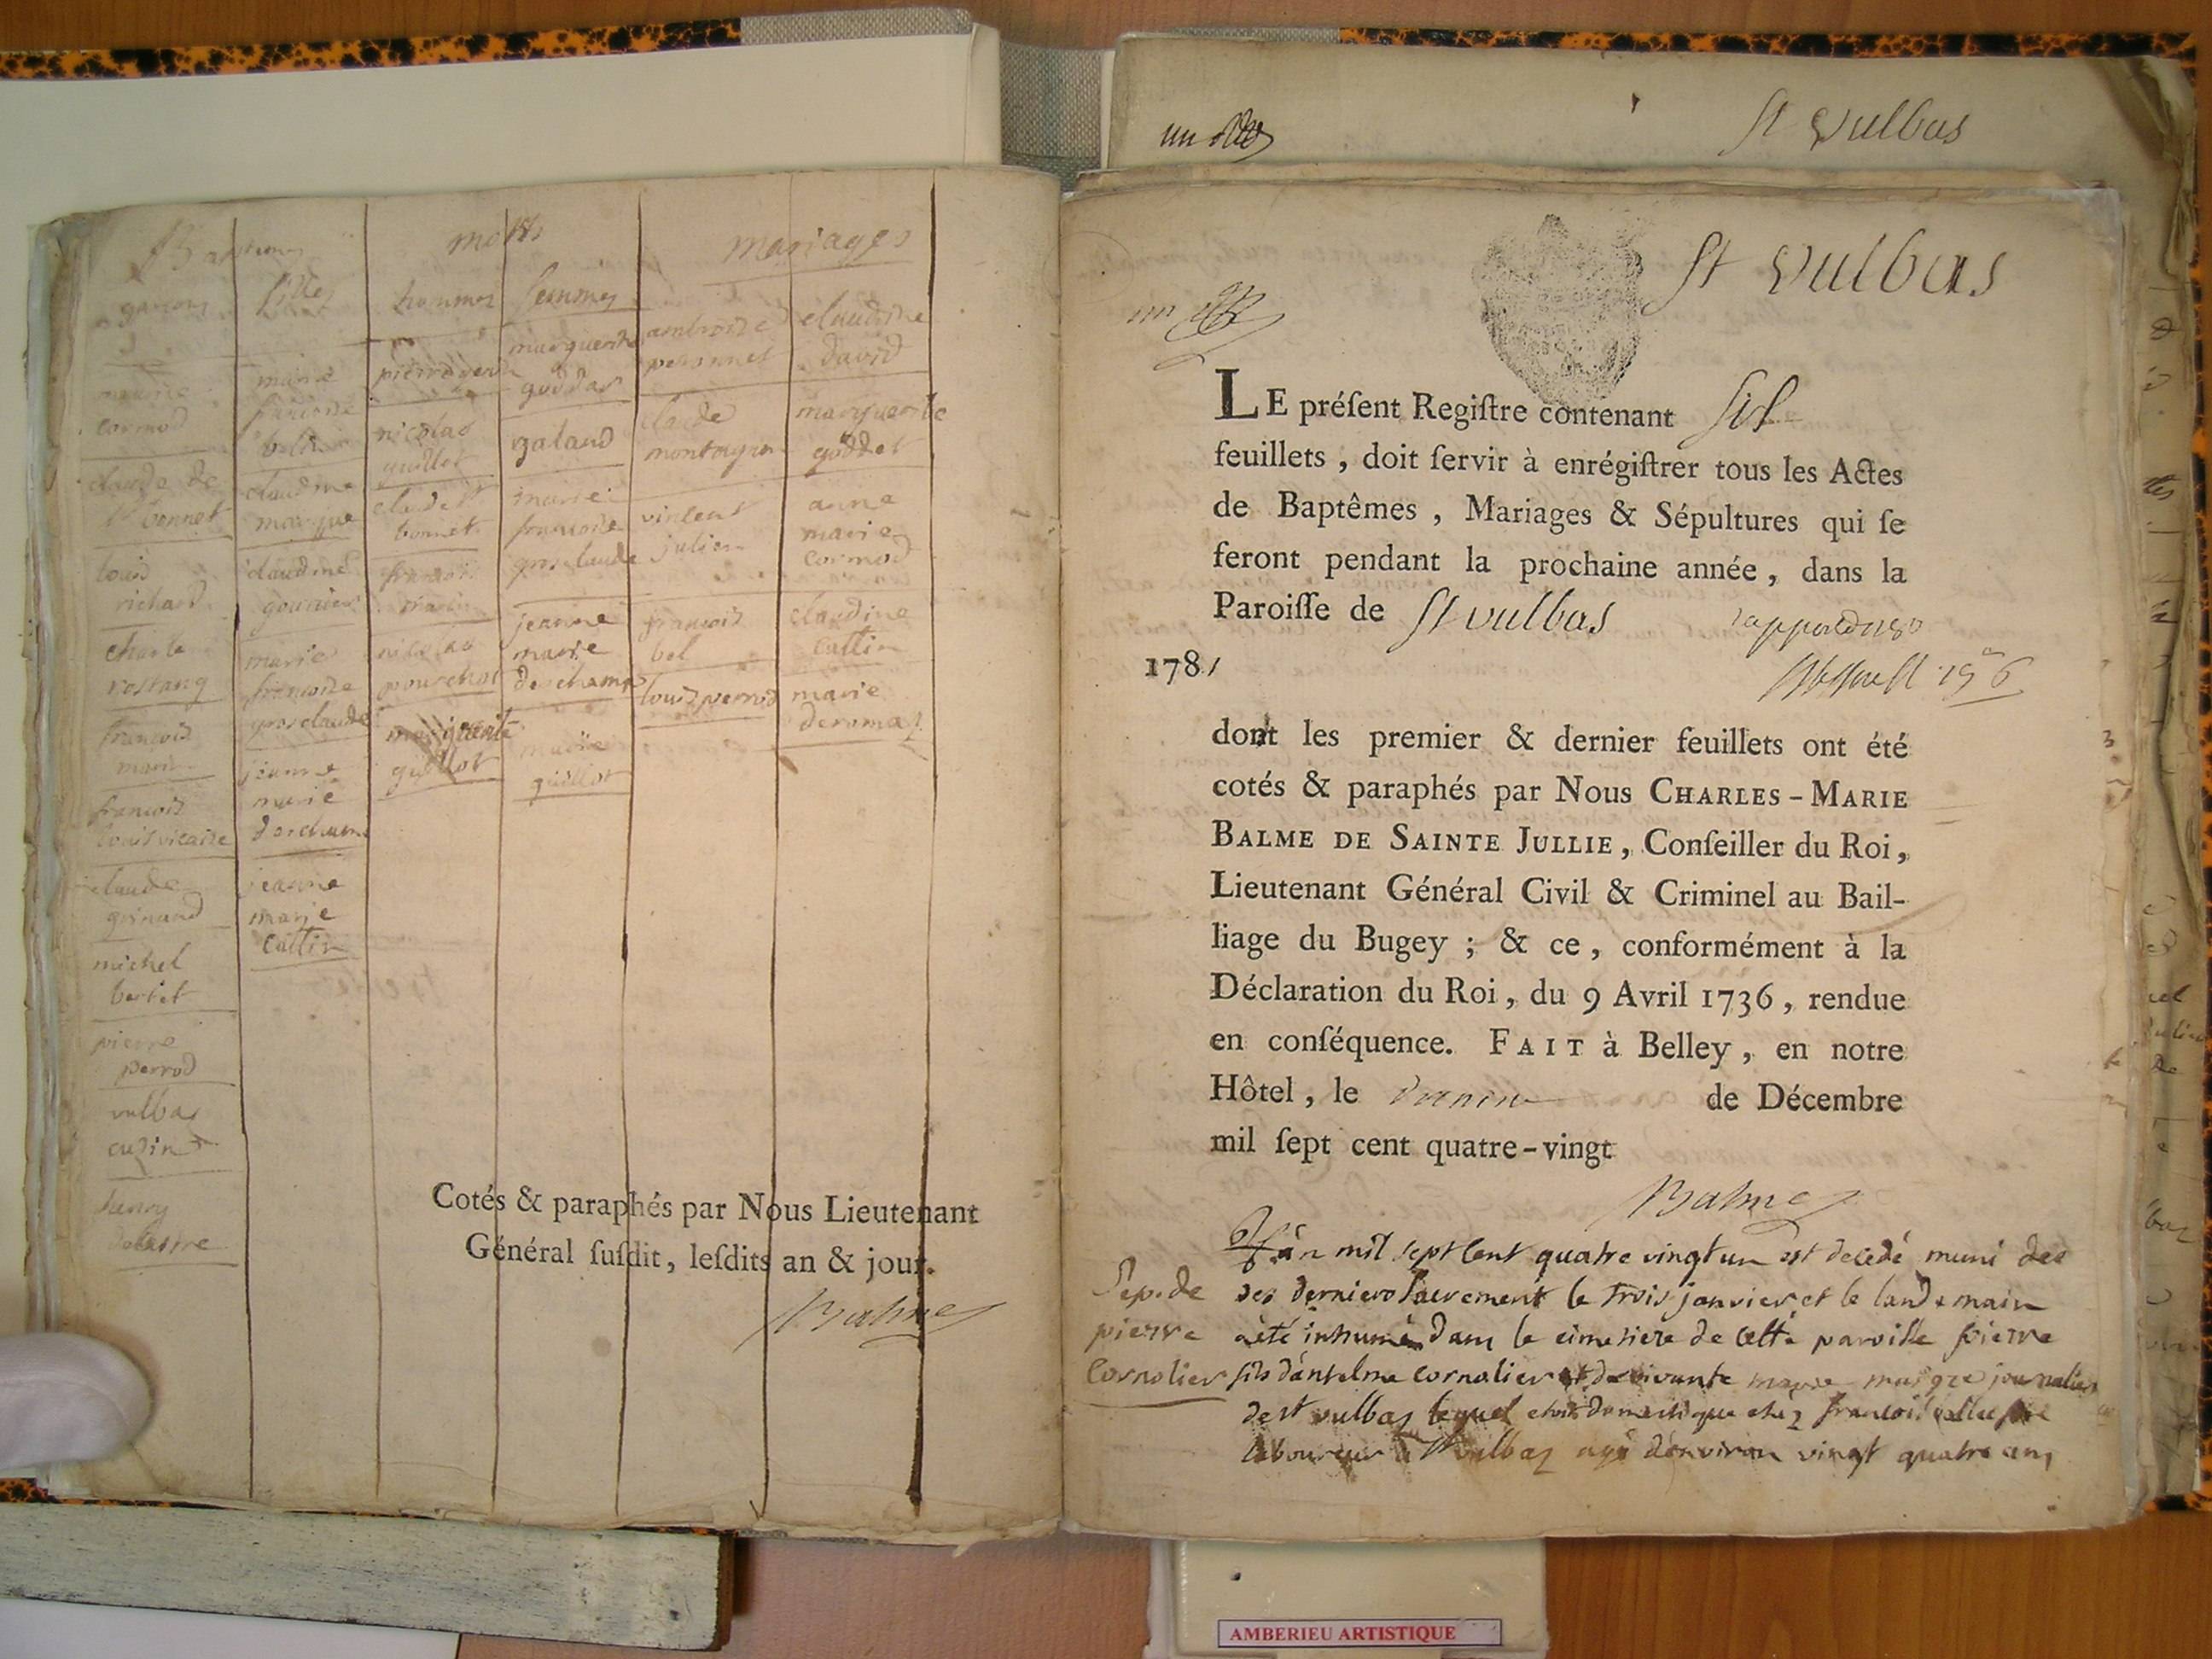 St Vulbas
Baptemes
morts
mariages
garcons
filles
hommes
femmes
cormod
claude de
st bonnet
louis
richard
charle
rostang
francois
marin
francois
louis vicaire
claude
michel
bertet
pierre
perrod
vulbas
cuzin
henry
delastre
marie
francoise
claudine
marque
claudine
marie
francoise
grosclaude
jeanne
marie
deschamp
jeanne
marie
cattin
nicolas
guillot
claude st
bonnet
francois
marin
nicolas
pourchot
marguerite
guillot
marguerite
goddar
galand
marie
francoise
grosclaude
jeanne
marie
deschamps
marie
guillot
ambroise
peronnet
claude
montagnon
vincent
julien
francois
bel
louis perrod
claudine
david
marguerite
goddet
anne
marie
cormod
claudine
cattin
marie
deromas
Cotés & paraphés par Nous Lieutenant
Général ſuſdit, leſdits an & jour.
Balme
St Vulbas
LE préſent Regiſtre contenant six
feuillets, doit ſervir à enrégiſtrer tous les Actes
de Baptêmes, Mariages & Sépultures qui ſe
feront pendant la prochaine année, dans la
Paroiſſe de St vulbas
1781
dont les premier & dernier feuillets ont été
cotés & paraphés par Nous CHARLES-MARIE
BALME DE SAINTE JULLIE, Conſeiller du Roi,
Lieutenant Général Civil & Criminel au Bail-
liage du Bugey ; & ce, conformément à la
Déclaration du Roi, du 9 Avril 1736, rendue
en conſéquence. FAIT à Belley, en notre
Hôtel, le de Décembre
mil ſept cent quatre-vingt
Balme
L'an mil sept cent quatre vingt un est decedé muni des
Sep. de
pierre
Cornolier
ses derniers sacrement le trois janvier et le landemain
a été inhumé dans le cimetiere de cette paroisse pierre
fils d'antelme cornolier et de vivante marie journalier
de st vulbas lequel etoit domestique chez francois
laboureur a st vulbas agé d'environ vingt quatre ans
AMBERIEU ARTISTIQUE